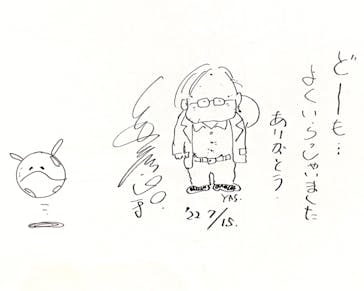 どーも…
よくいらっしゃいました
ありがとう.
YAS.
'22 7/15.